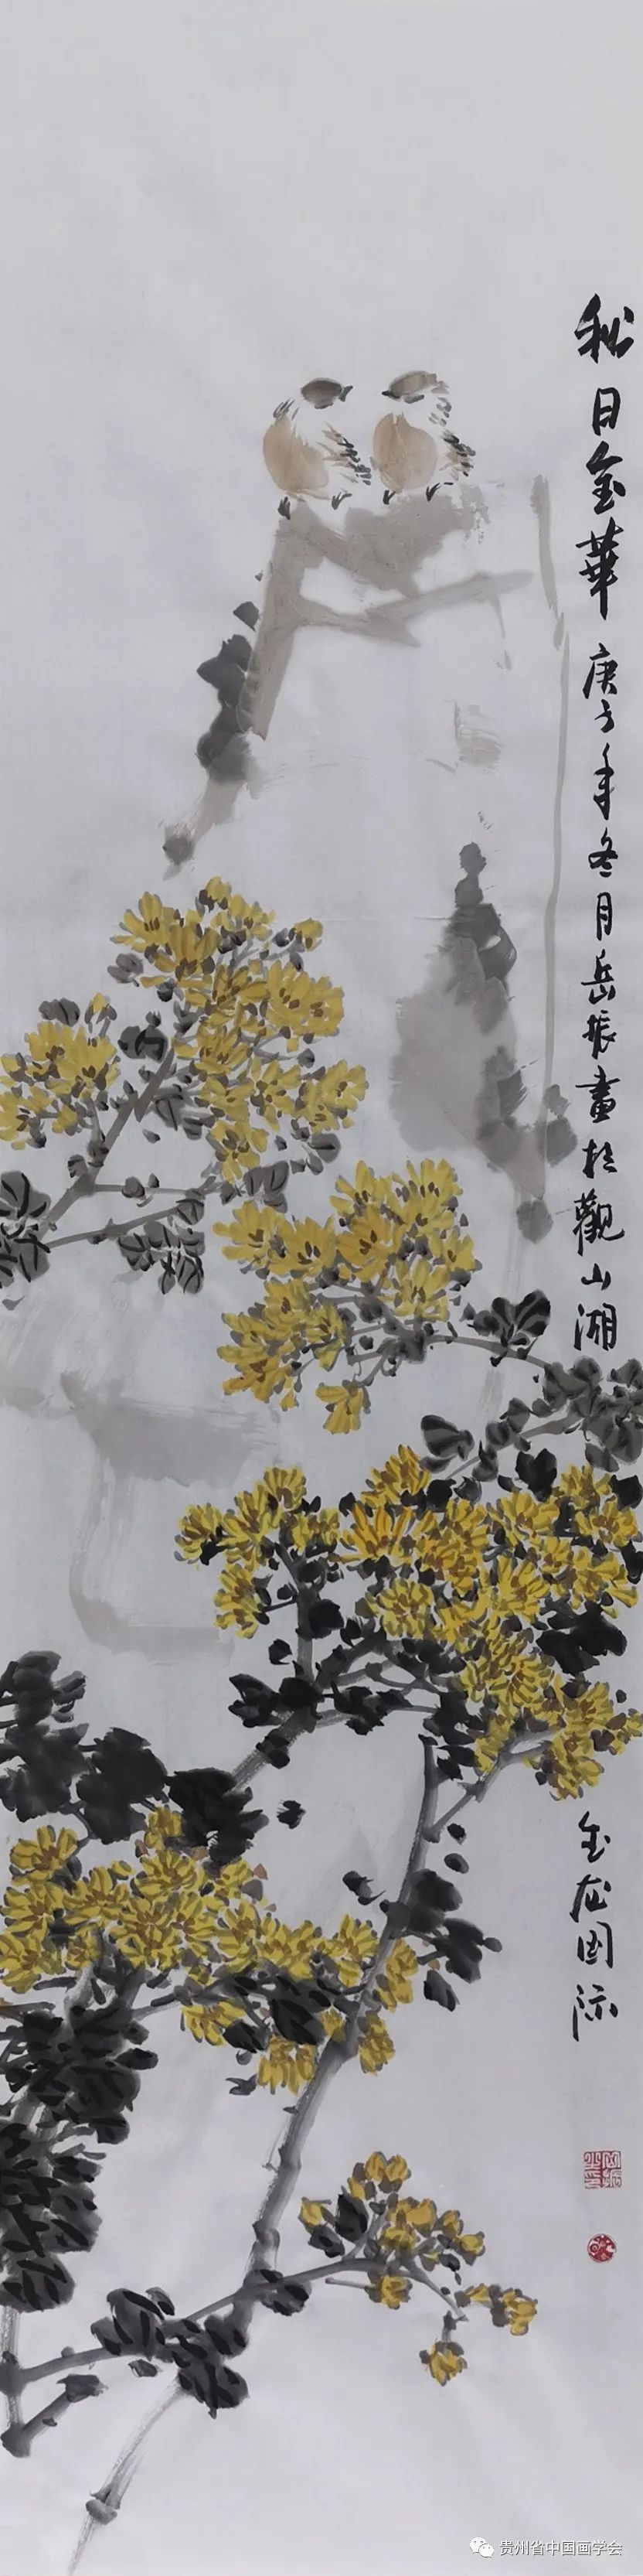 秋日金華 庚子年冬月岳振畫於觀山湖
金龙国际
贵州省中国画学会